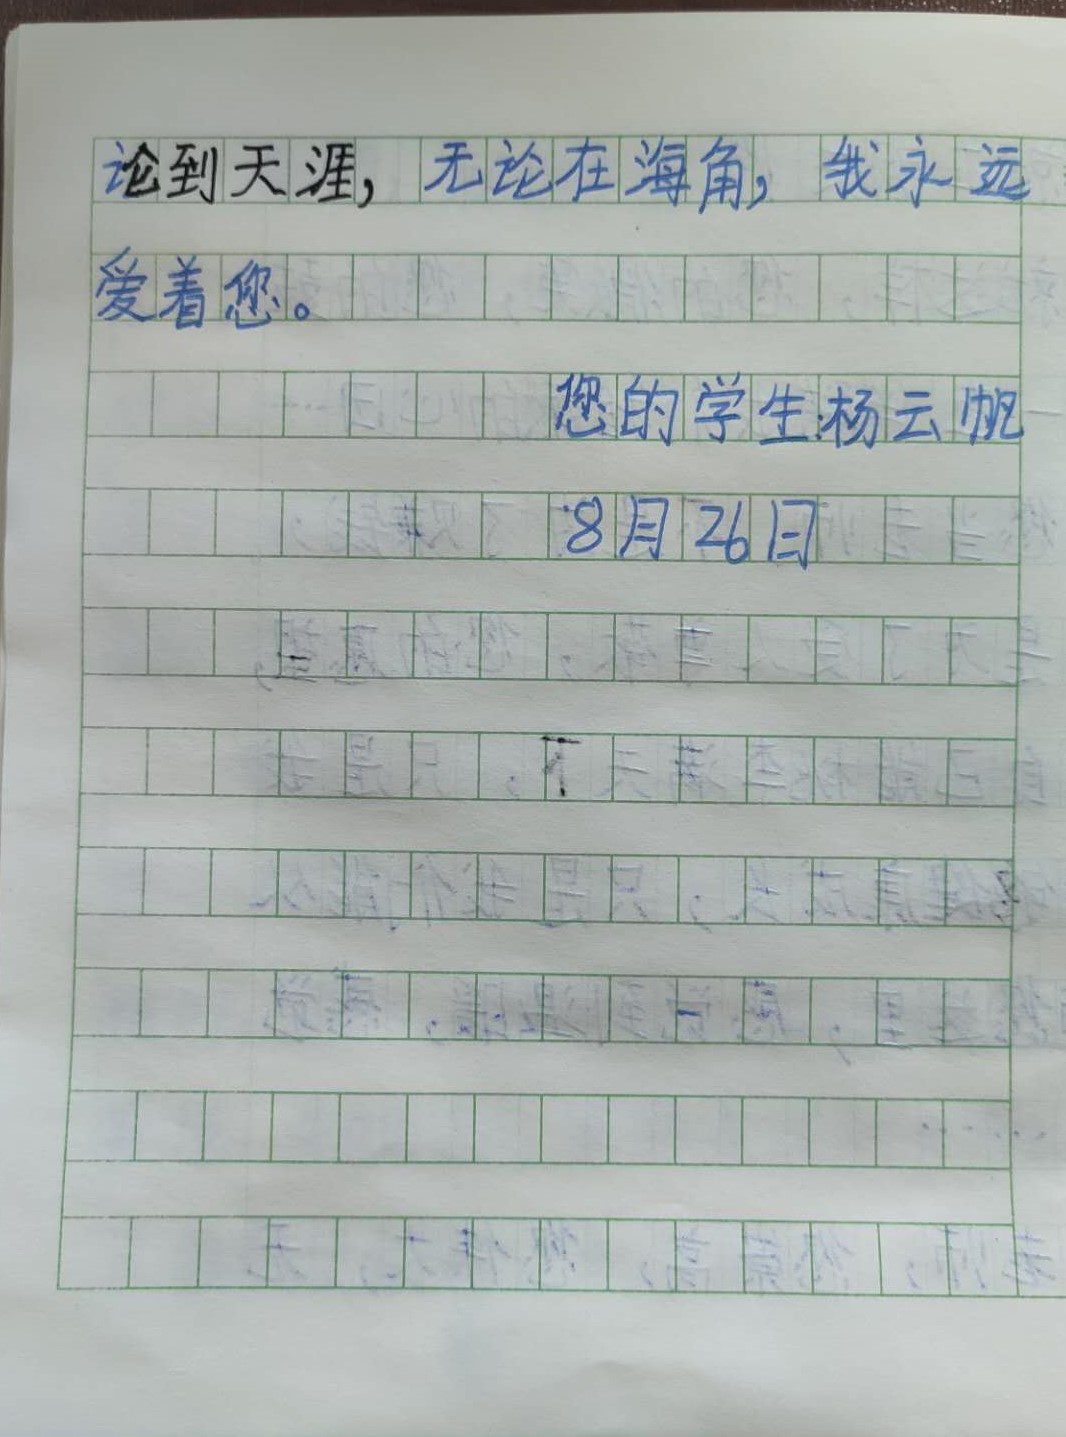 论到天涯，无论在海角，我永远
爱着您。
您的学生:杨云帆
8月26日